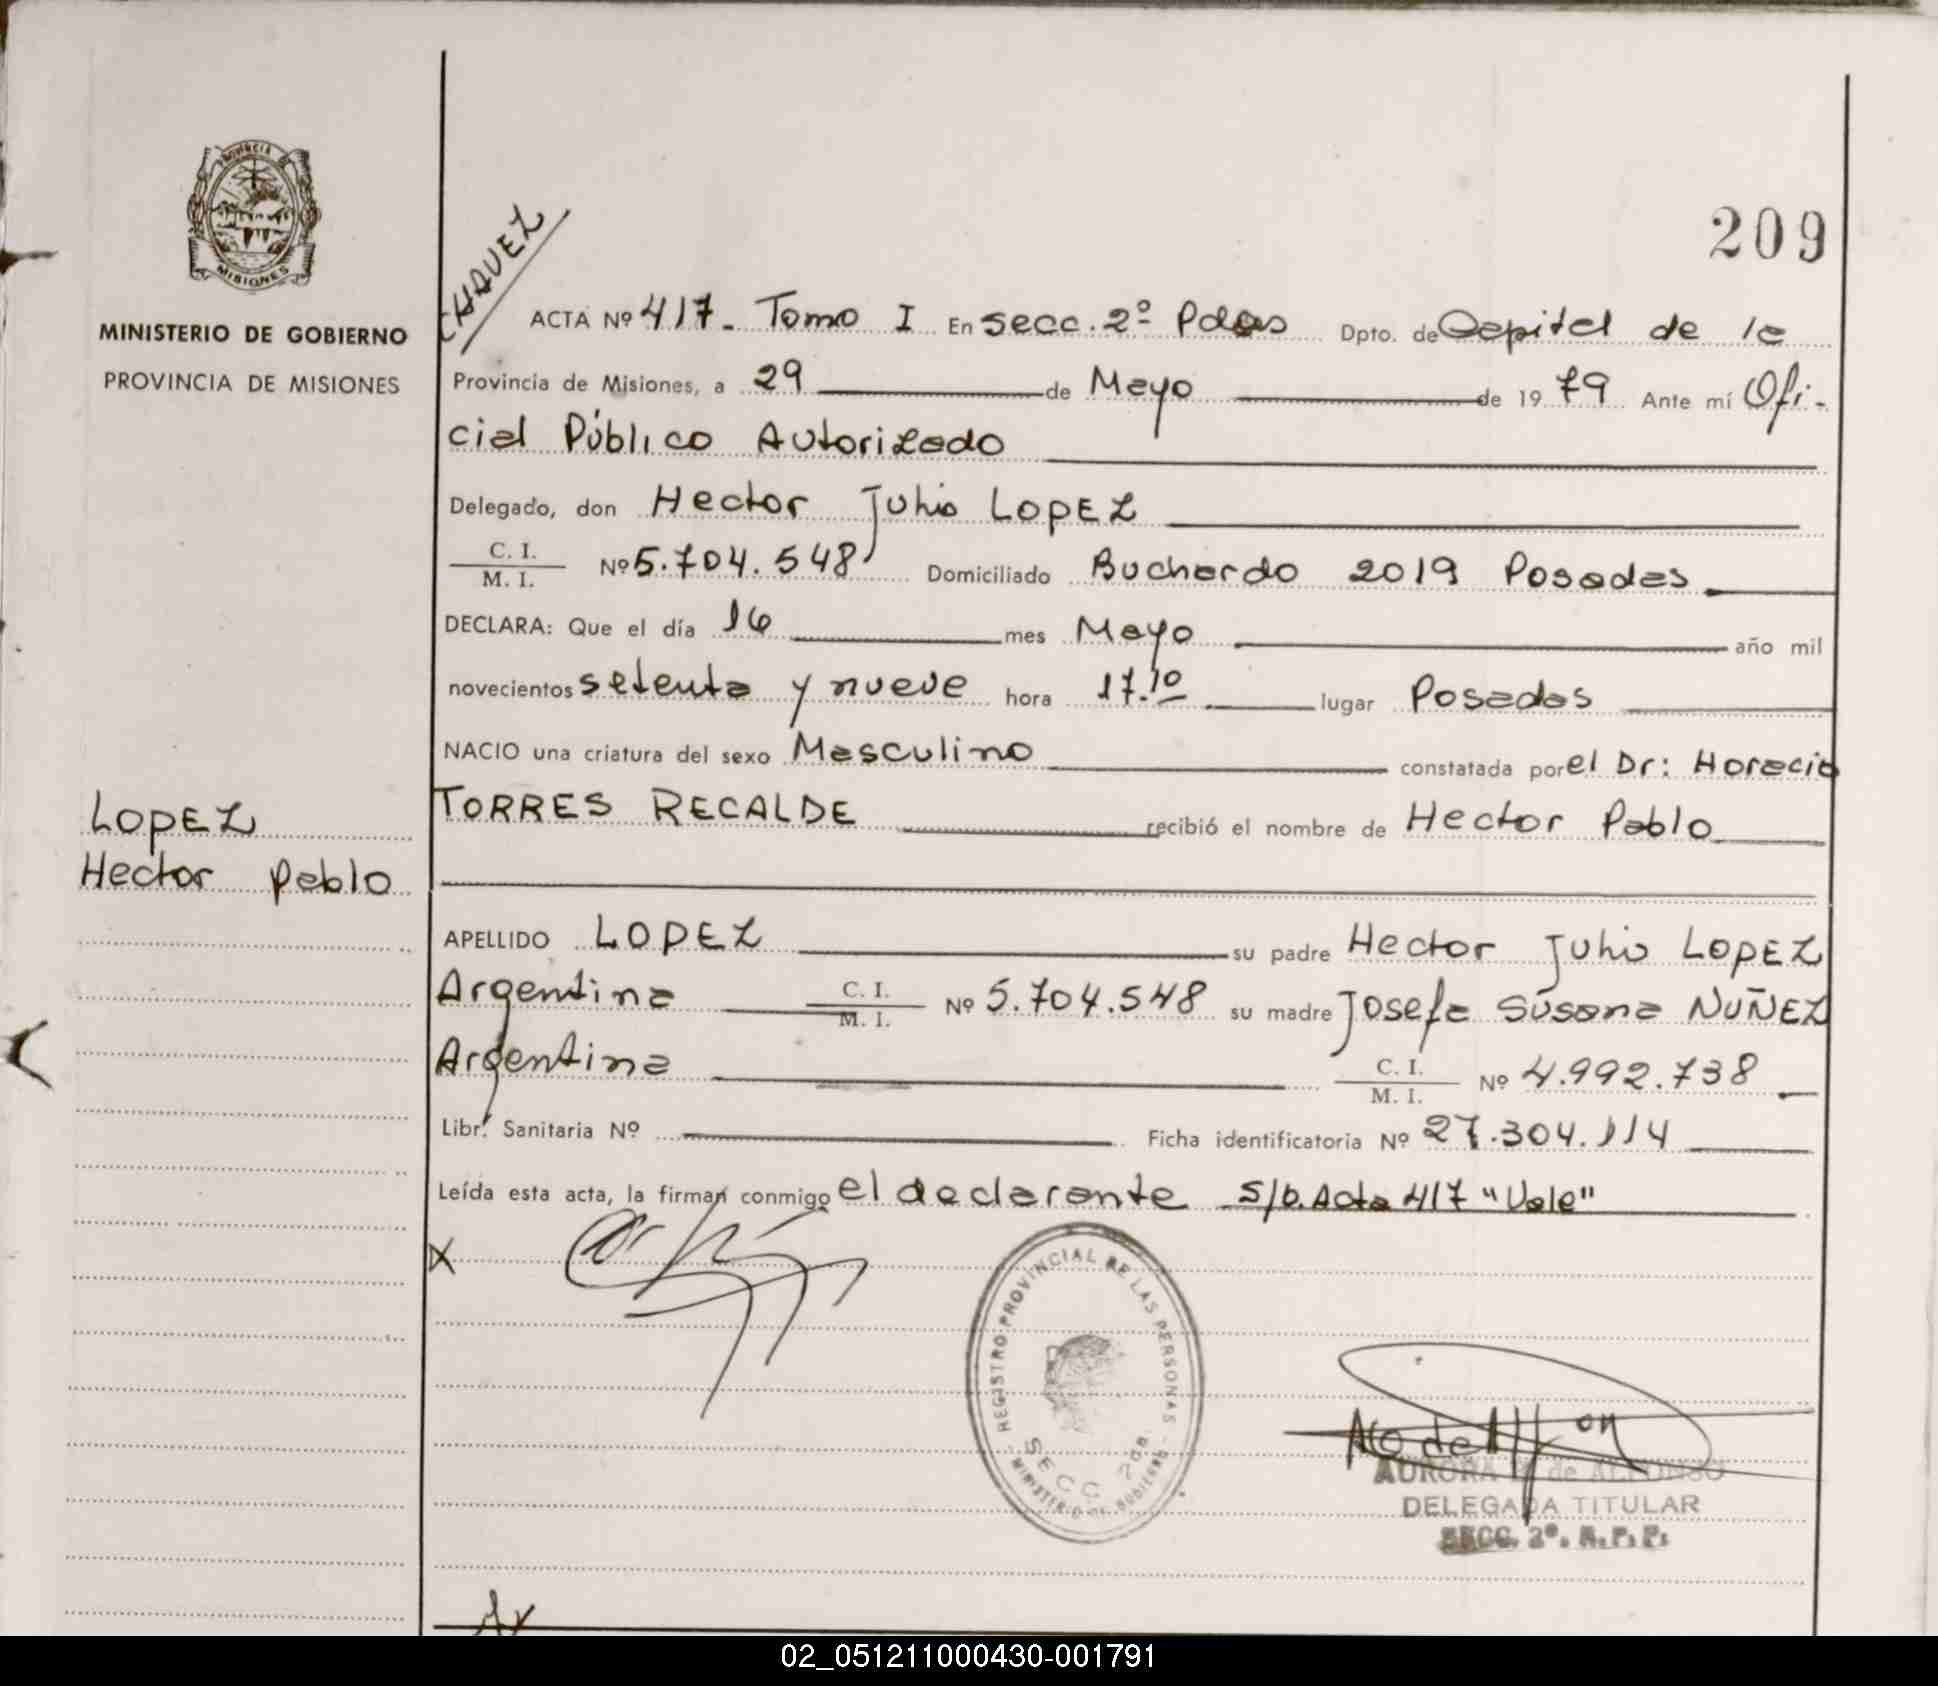 PROVINCIA DE
MISIONES
MINISTERIO DE GOBIERNO
PROVINCIA DE MISIONES
209
CHAVEZ
ACTA Nº 417- Tomo I En secc. 2º Pdas Dpto. de Capital de la
Provincia de Misiones, a 29 de Mayo de 1979 Ante mí Ofi-
cial Público Autorizado
Delegado, don Hector Julio LOPEZ
C. I.
M. I. Nº 5.704.548 Domiciliado Buchardo 2019 Posadas
DECLARA: Que el día 16 mes Mayo año mil
novecientos setenta y nueve hora 17.10 lugar Posadas
NACIO una criatura del sexo Masculino constatada por el Dr: Horacio
TORRES RECALDE recibió el nombre de Hector Pablo
LOPEZ
Hector Pablo
APELLIDO LOPEZ su padre Hector Julio LOPEZ
Argentina C. I.
M. I. Nº 5.704.548 su madre Josefa Susana NUÑEZ
Argentina C. I.
M. I. Nº 4.992.738
Libr. Sanitaria Nº Ficha identificatoria Nº 27.304.114
Leída esta acta, la firman conmigo el declarante S/b. Acta 417 "Vale"
X
REGISTRO PROVINCIAL DE LAS PERSONAS
SECC 2da.
- MINISTERIO DE GOBIERNO -
AURORA de ALFONSO
DELEGADA TITULAR
SECC. 2º. R.P.P.
02_051211000430-001791